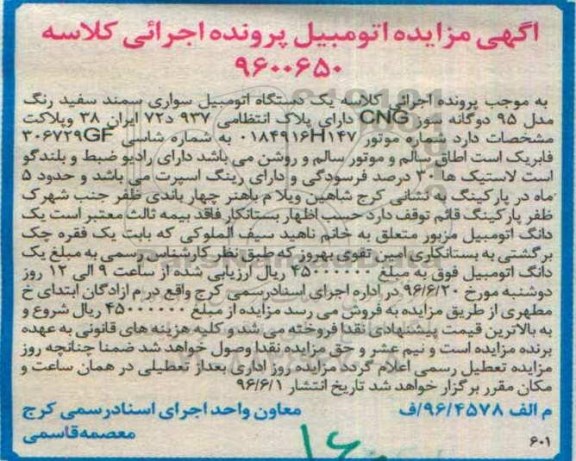 آگهی مزایده اتومبیل پرونده اجرائی کلاسه
۹۶۰۰۶۵۰
به موجب پرونده اجرائی کلاسه یک دستگاه اتومبیل سواری سمند سفید رنگ
مدل ۹۵ دوگانه سوز CNG دارای پلاک انتظامی ۹۳۷ د۷۲ ایران ۳۸ وپلاکت
مشخصات دارد شماره موتور ۰۱۸۴۹۱۶H۱۴۷ به شماره شاسی ۳۰۶۷۲۹GF
فابریک است اطاق سالم و موتور سالم و روشن می باشد دارای رادیو ضبط و بلندگو
است لاستیک ها ۳۰ درصد فرسودگی و دارای رینگ اسپرت می باشد و حدود ۵
ماه در پارکینگ به نشانی کرج شاهین ویلا م باهنر چهار باندی ظفر جنب شهرک
ظفر پارکینگ قائم توقف دارد حسب اظهار بستانکار فاقد بیمه ثالث معتبر است یک
دانگ اتومبیل مزبور متعلق به خانم ناهید سیف الملوکی که بابت یک فقره چک
برگشتی به بستانکاری امین تقوی بهروز که طبق نظر کارشناس رسمی به مبلغ یک
دانگ اتومبیل فوق به مبلغ ریال ارزیابی شده از ساعت ۹ الی ۱۲ روز
دوشنبه مورخ ۹۶/۶/۲۰ در اداره اجرای اسنادرسمی کرج واقع در م ازادگان ابتدای خ
مطهری از طریق مزایده به فروش می رسد مزایده از مبلغ ۴۵۰۰۰۰۰۰ ریال شروع و
به بالاترین قیمت پیشنهادی نقدا فروخته می شد و کلیه هزینه های قانونی به عهده
برنده مزایده است و نیم عشر و حق مزایده نقدا وصول خواهد شد ضمنا چنانچه روز
مزایده تعطیل رسمی اعلام گردد مزایده روز اداری بعداز تعطیلی در همان ساعت و
مکان مقرر برگزار خواهد شد تاریخ انتشار ۹۶/۶/۱
م الف ۹۶/۴۵۷۸/ف معاون واحد اجرای اسنادرسمی کرج
۶۰۱ معصمه قاسمی